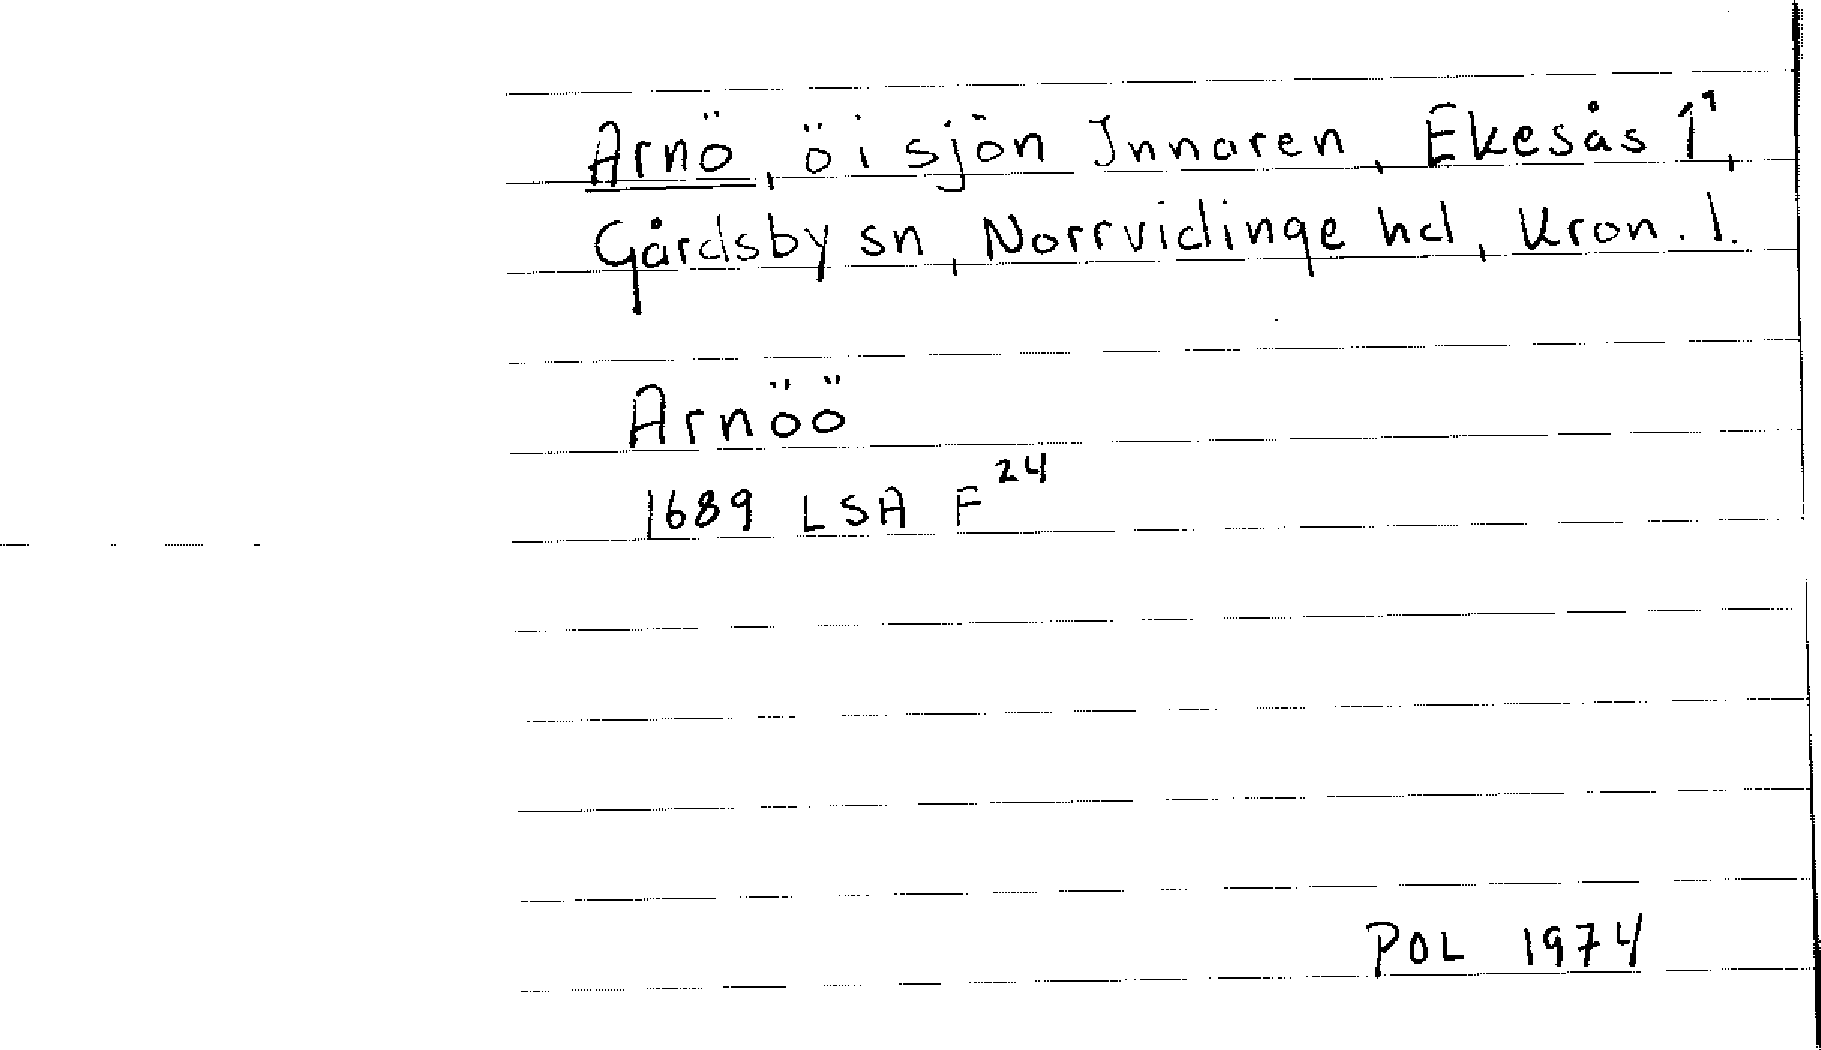 Arnö, ö i sjön Innaren, Ekesås 1¹,
Gårdsby sn, Norrvidinge hd, Kron. l.
Arnöö
1689 LSA F²⁴
POL 1974